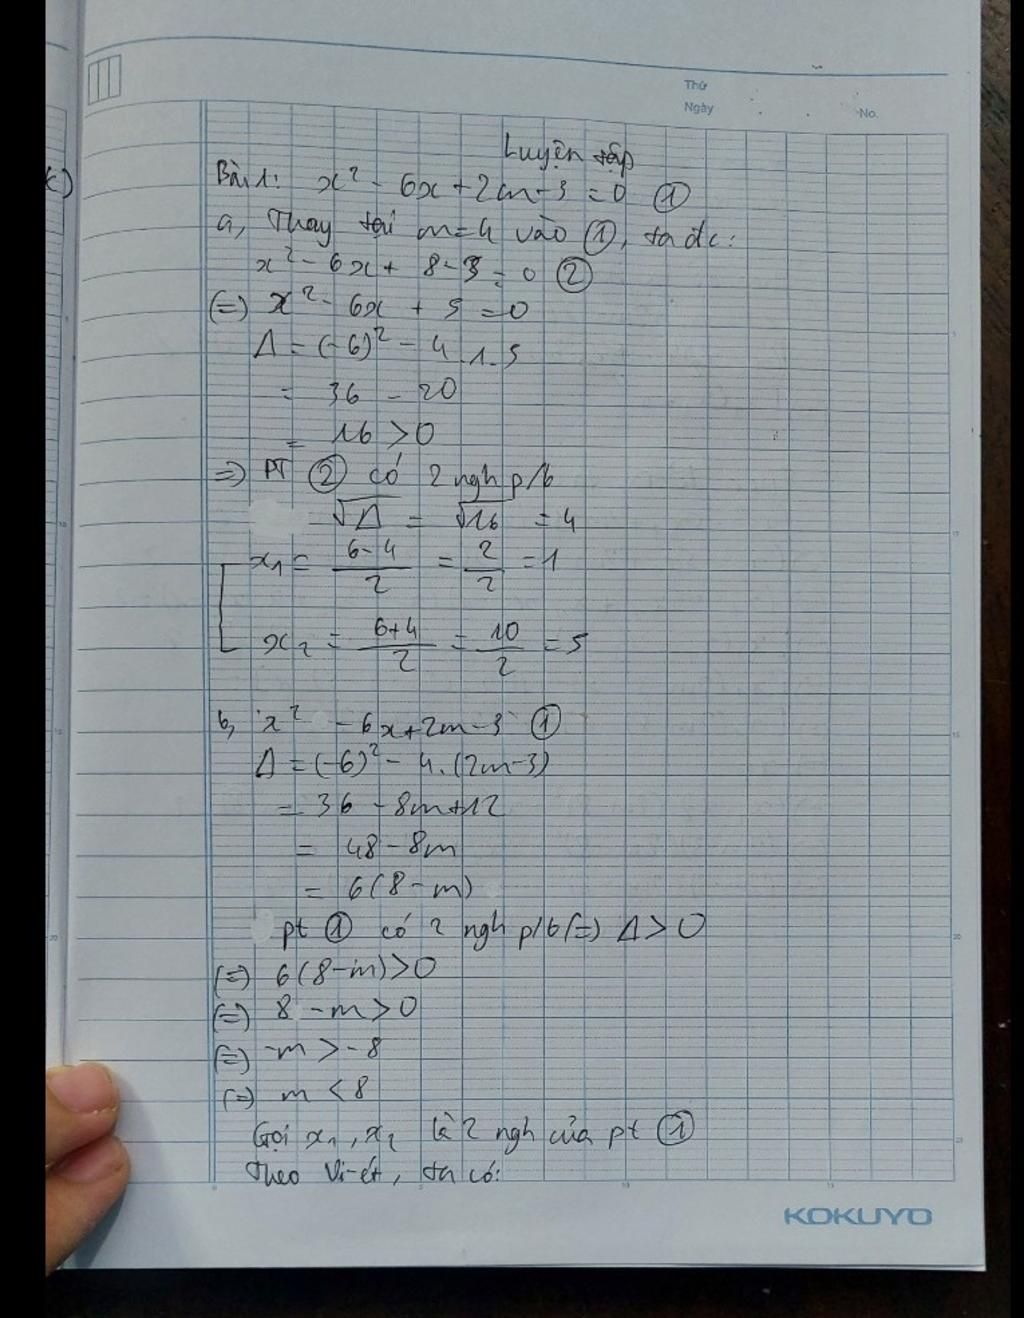 Thứ
Ngày
No.
Luyện tập
Bài 1: x² - 6x + 2m - 3 = 0 ①
a, Thay tại m = 4 vào ①, ta đc:
x² - 6x + 8 - 3 = 0 ②
(=) x² - 6x + 5 = 0
Δ = (-6)² - 4.1.5
= 36 - 20
= 16 > 0
=) PT ② có 2 ngh p/b
√Δ = √16 = 4
x₁ = (6-4)/2 = 2/2 = 1
x₂ = (6+4)/2 = 10/2 = 5
b, x² - 6x + 2m - 3 ①
Δ = (-6)² - 4.(2m-3)
= 36 - 8m + 12
= 48 - 8m
= 6(8 - m)
pt ① có 2 ngh p/b (=) Δ > 0
(=) 6(8-m) > 0
(=) 8 - m > 0
(=) -m > -8
(=) m < 8
Gọi x₁, x₂ là 2 ngh của pt ①
Theo Vi-ét, ta có:
KOKUYO